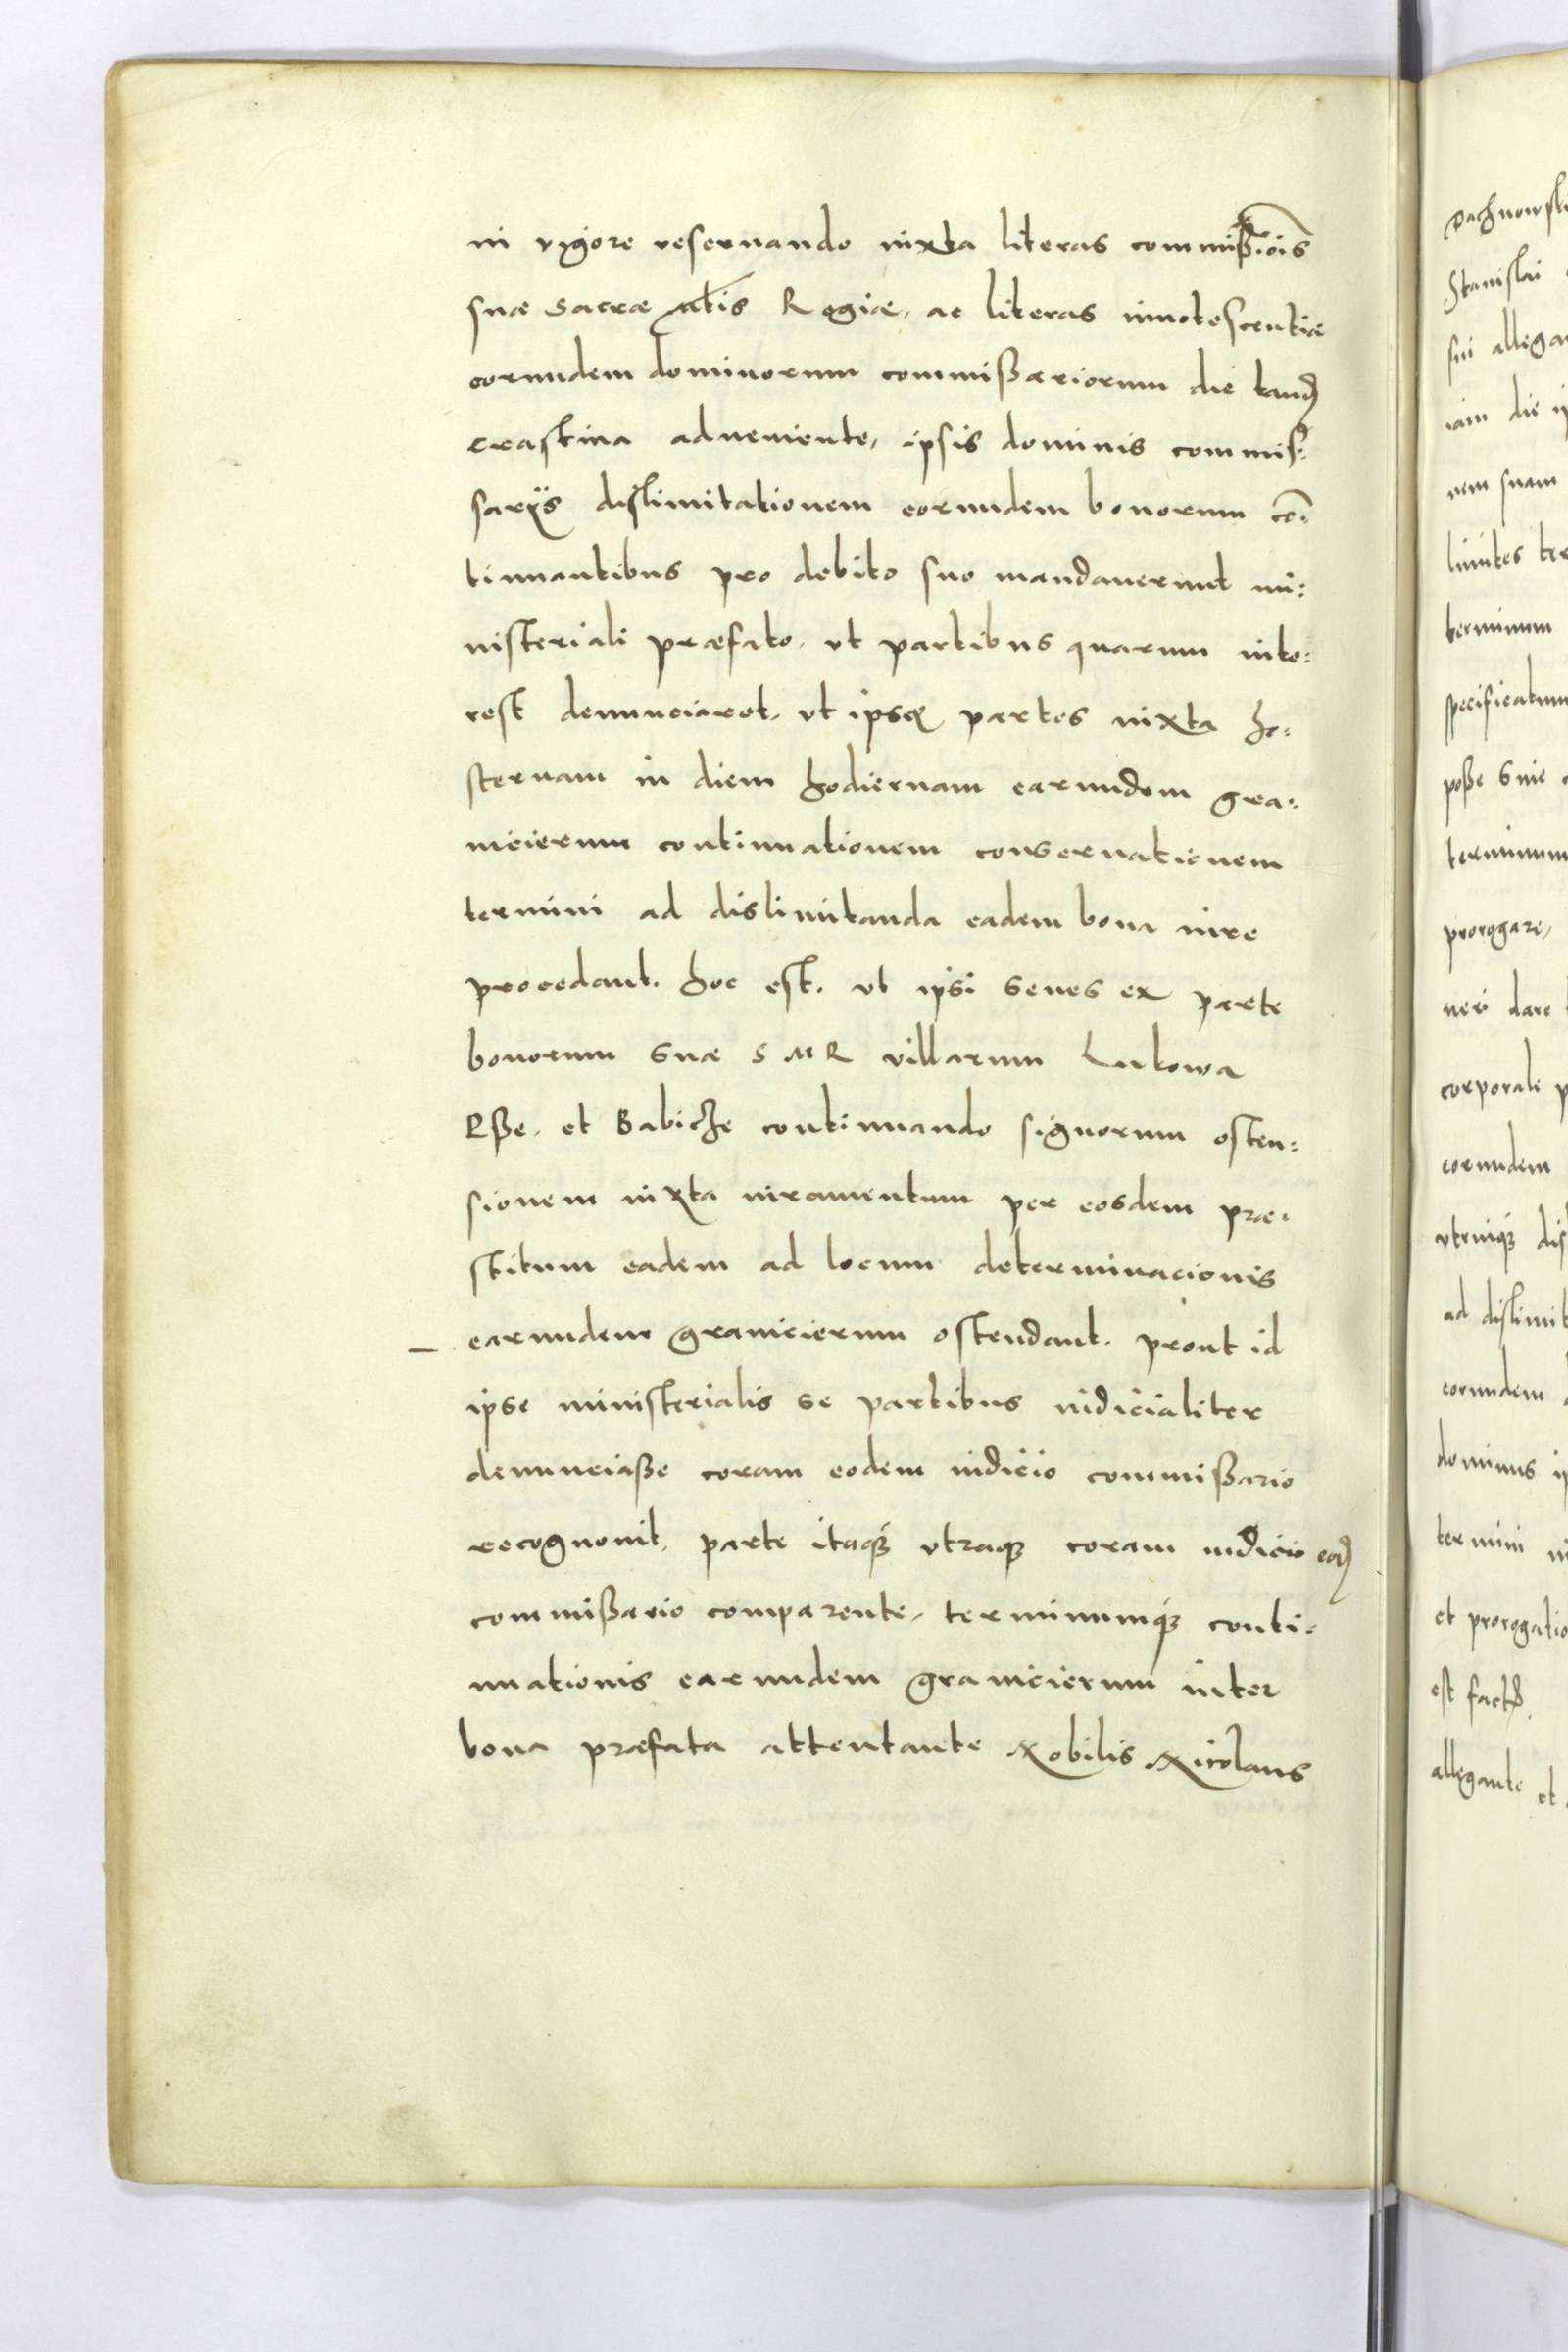 in vigore reseruando iuxta literas commißiois
suæ Sacræ Mtis Regiæ, ac literas innotescentiæ
eorundem dominorum commißariorum die tand
crastina adueniente, ipsis dominis commis:
sarijs dislimitationem eorundem bonorum con:
tinuantibus pro debito suo mandauerunt mi:
nisteriali præfato, vt partibus quarum inte:
rest denunciaret, vt ipsæ partes iuxta he:
sternam in diem hodiernam earundem gra:
nicierum continuationem conseruationem
termini ad dislimitanda eadem bona iure
procedant. hoc est. vt ipsi senes ex parte
bonorum suæ S M R villarum Lukowa
Rße. et Babicze continuando signorum osten:
sionem iuxta iuramentum per eosdem præ:
stitum eadem ad locum determinacionis
earundem granicierum ostendant. prout id
ipse ministerialis se partibus iudicialiter
denunciaße coram eodem iudicio commißario
recognouit, parte itaq vtraq coram iudicio eod
commißario comparente, terminumq conti:
nuationis earundem granicierum inter
bona præfata attentante Nobilis Nicolaus
Dachnowsk
Stanislai
sui allega
iam die
nem suam
limites ter
terminum
specificatum
poße siue
terminum
prorogare,
neri dare
corporali
eorundem
vtriusq dis
ad dislimit
eorundem
dominus ip
termini
et prorogatio
est fact
allegante et